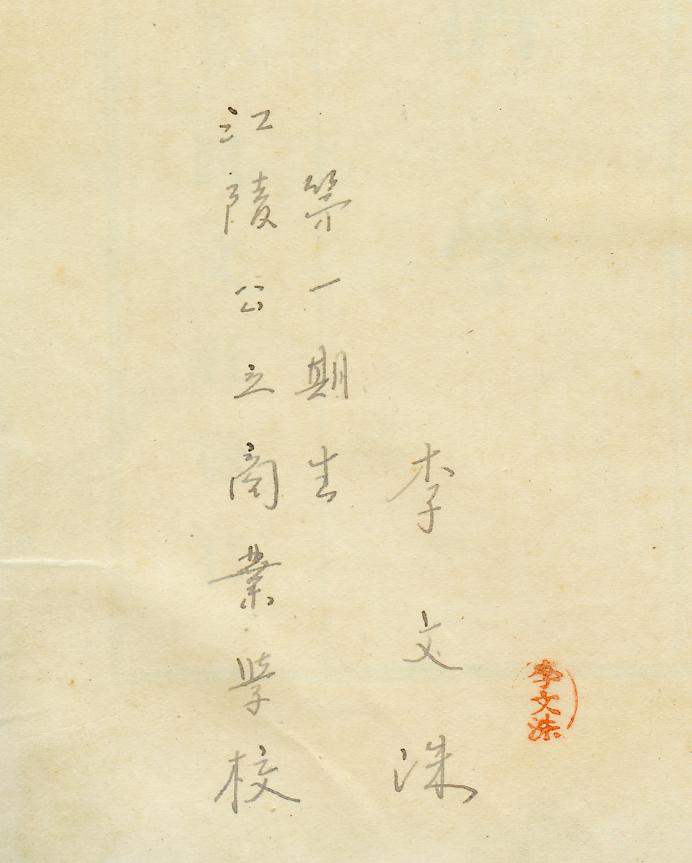 李文洙
李文洙
第一期生
江陵公立商業学校